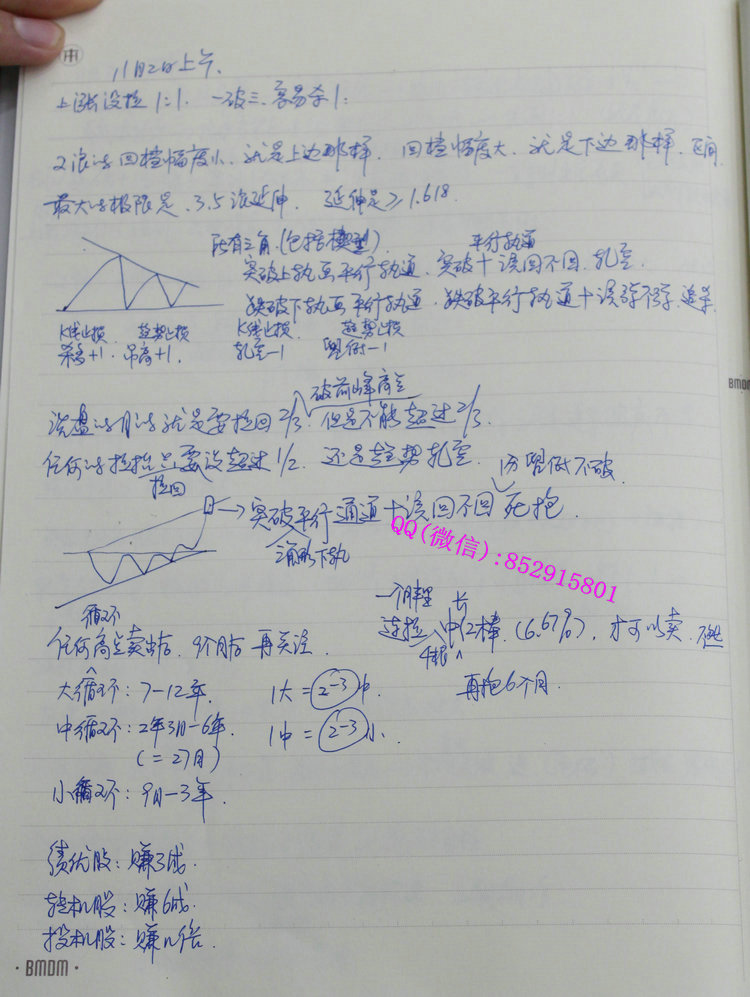 11月2日上午.
上涨没拉1:1. 一破三. 容易杀1:
2浪的回档幅度小. 就是上边那样. 回档幅度大. 就是下边那样. 区间
最大的极限是. 3.5浪延伸. 延伸是≥1.618.
所有三角.(包括楔型). 平行轨道
突破上轨画平行轨道. 突破+该回不回. 轧空.
跌破下轨画平行轨道. 跌破平行轨道+该弹不弹. 追杀.
K线止损 趋势止损 K线止损 趋势止损
+1. 吊高+1. 轧空-1 -1
破前峰高点
洗盘的月的就是要拉回2/3. 但是不能超过2/3.
任何的拉抬只要没超过1/2. 还是趋势轧空.
低不破
拉回
→突破平行通道+该回不回 死抱.
三角形下轨
QQ(微信):852915801
循环
任何高点卖出后. 9个月后再关注.
一个月里 长
连拉 中12棒 (6.67%). 才可以卖.
4根
再抱6个月.
大循环: 7-12年. 1大=2-3中.
中循环: 2年3月-6年. 1中=2-3小.
(=27月)
小循环: 9月-3年.
绩优股: 赚3成.
转机股: 赚6成.
投机股: 赚n倍.
· BMDM ·
BMDM